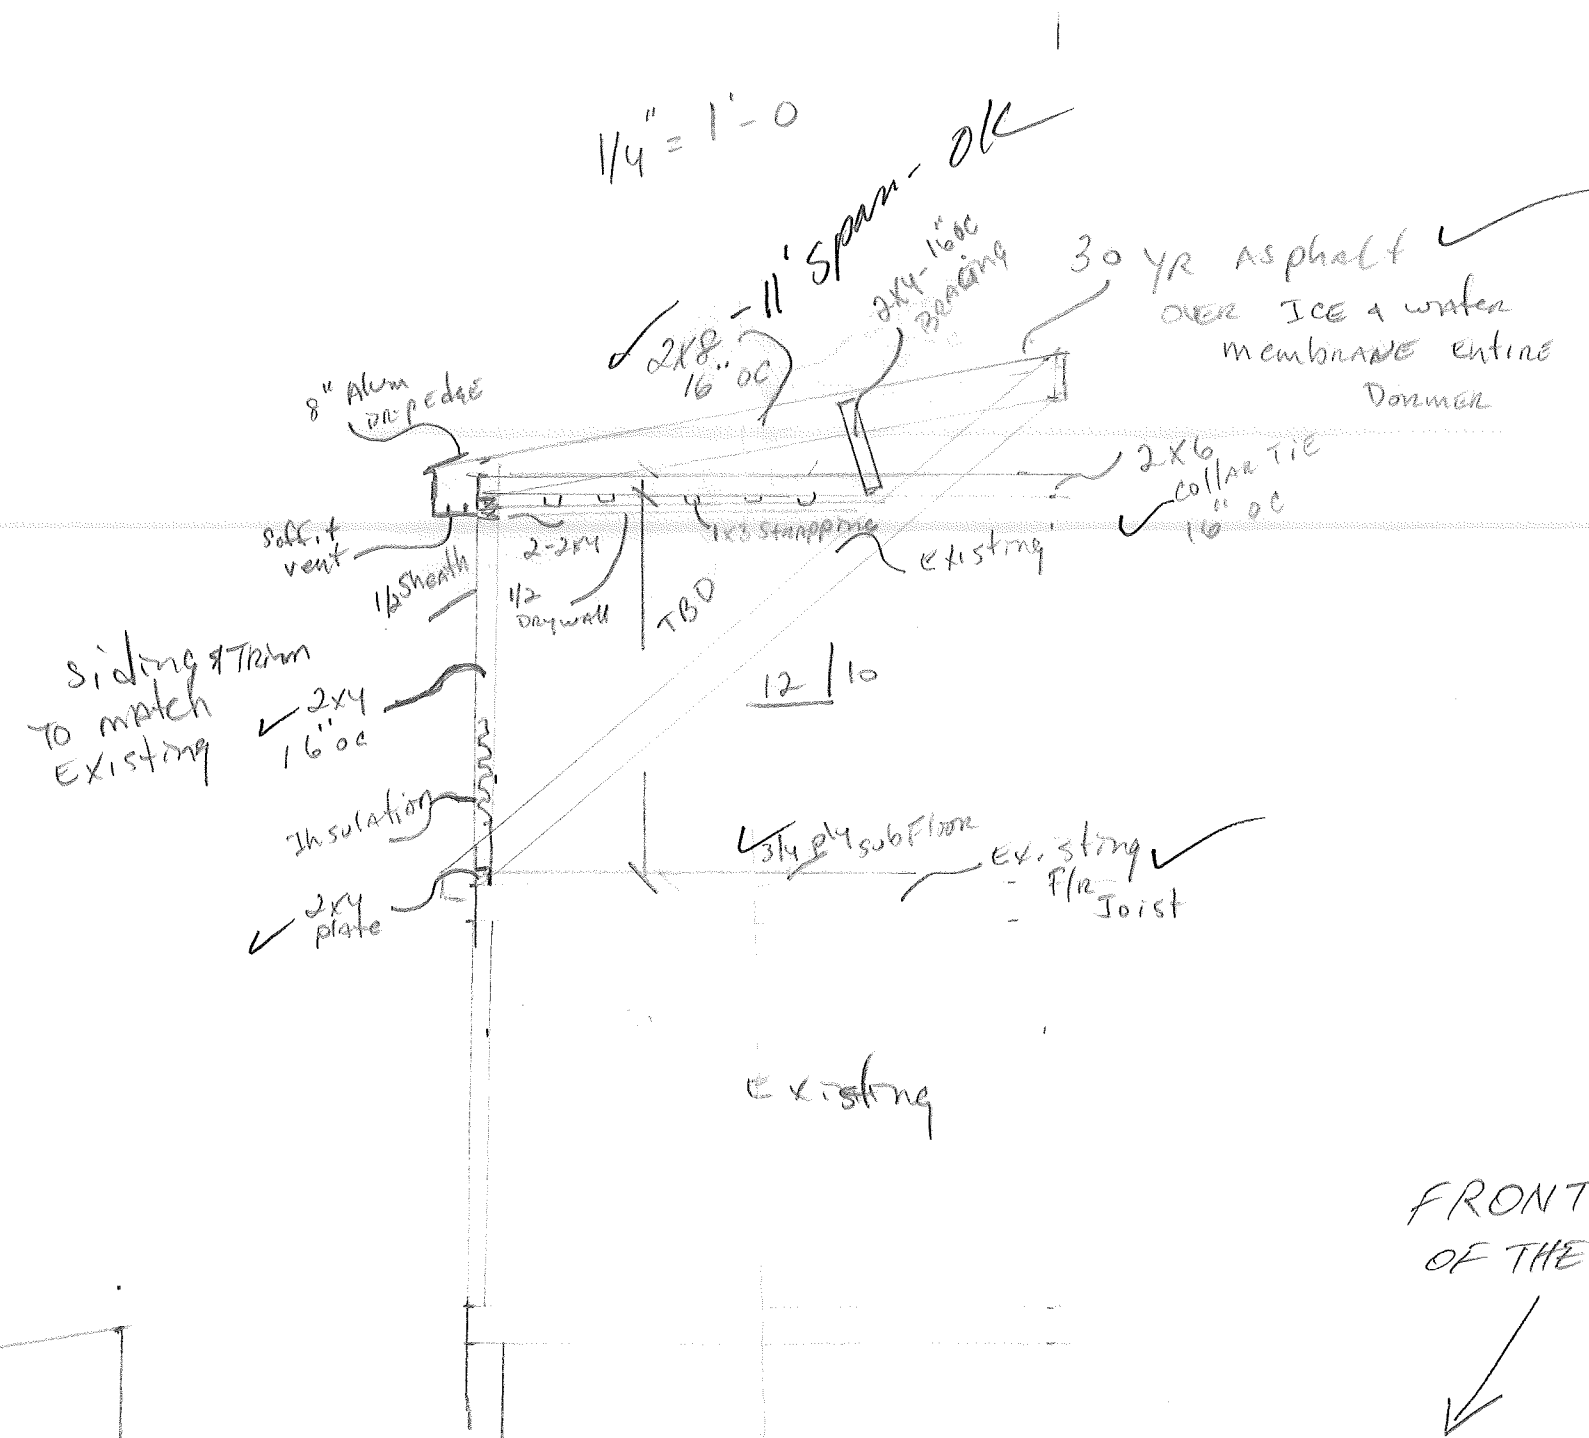 1/4" = 1'-0
2x8 - 11' Span - OK
16" OC
2x4-16"OC
BRACING
30 YR ASphalt
OVER ICE & WATER
MEMBRANE ENTIRE
DORMER
8" Alum
DRIPEDGE
2X6
COllAR TIE
16" OC
Soffit
vent
2-2x4
1x3 Strapping
Existing
1/2 Sheath
1/2
DRYWAll
TBD
Siding & TRIM
TO MATCH
EXISTING
2x4
16" OC
12/10
Insulation
3/4 Ply SubFlooR
Existing
F/R
Joist
2x4
plate
Existing
FRONT
OF THE